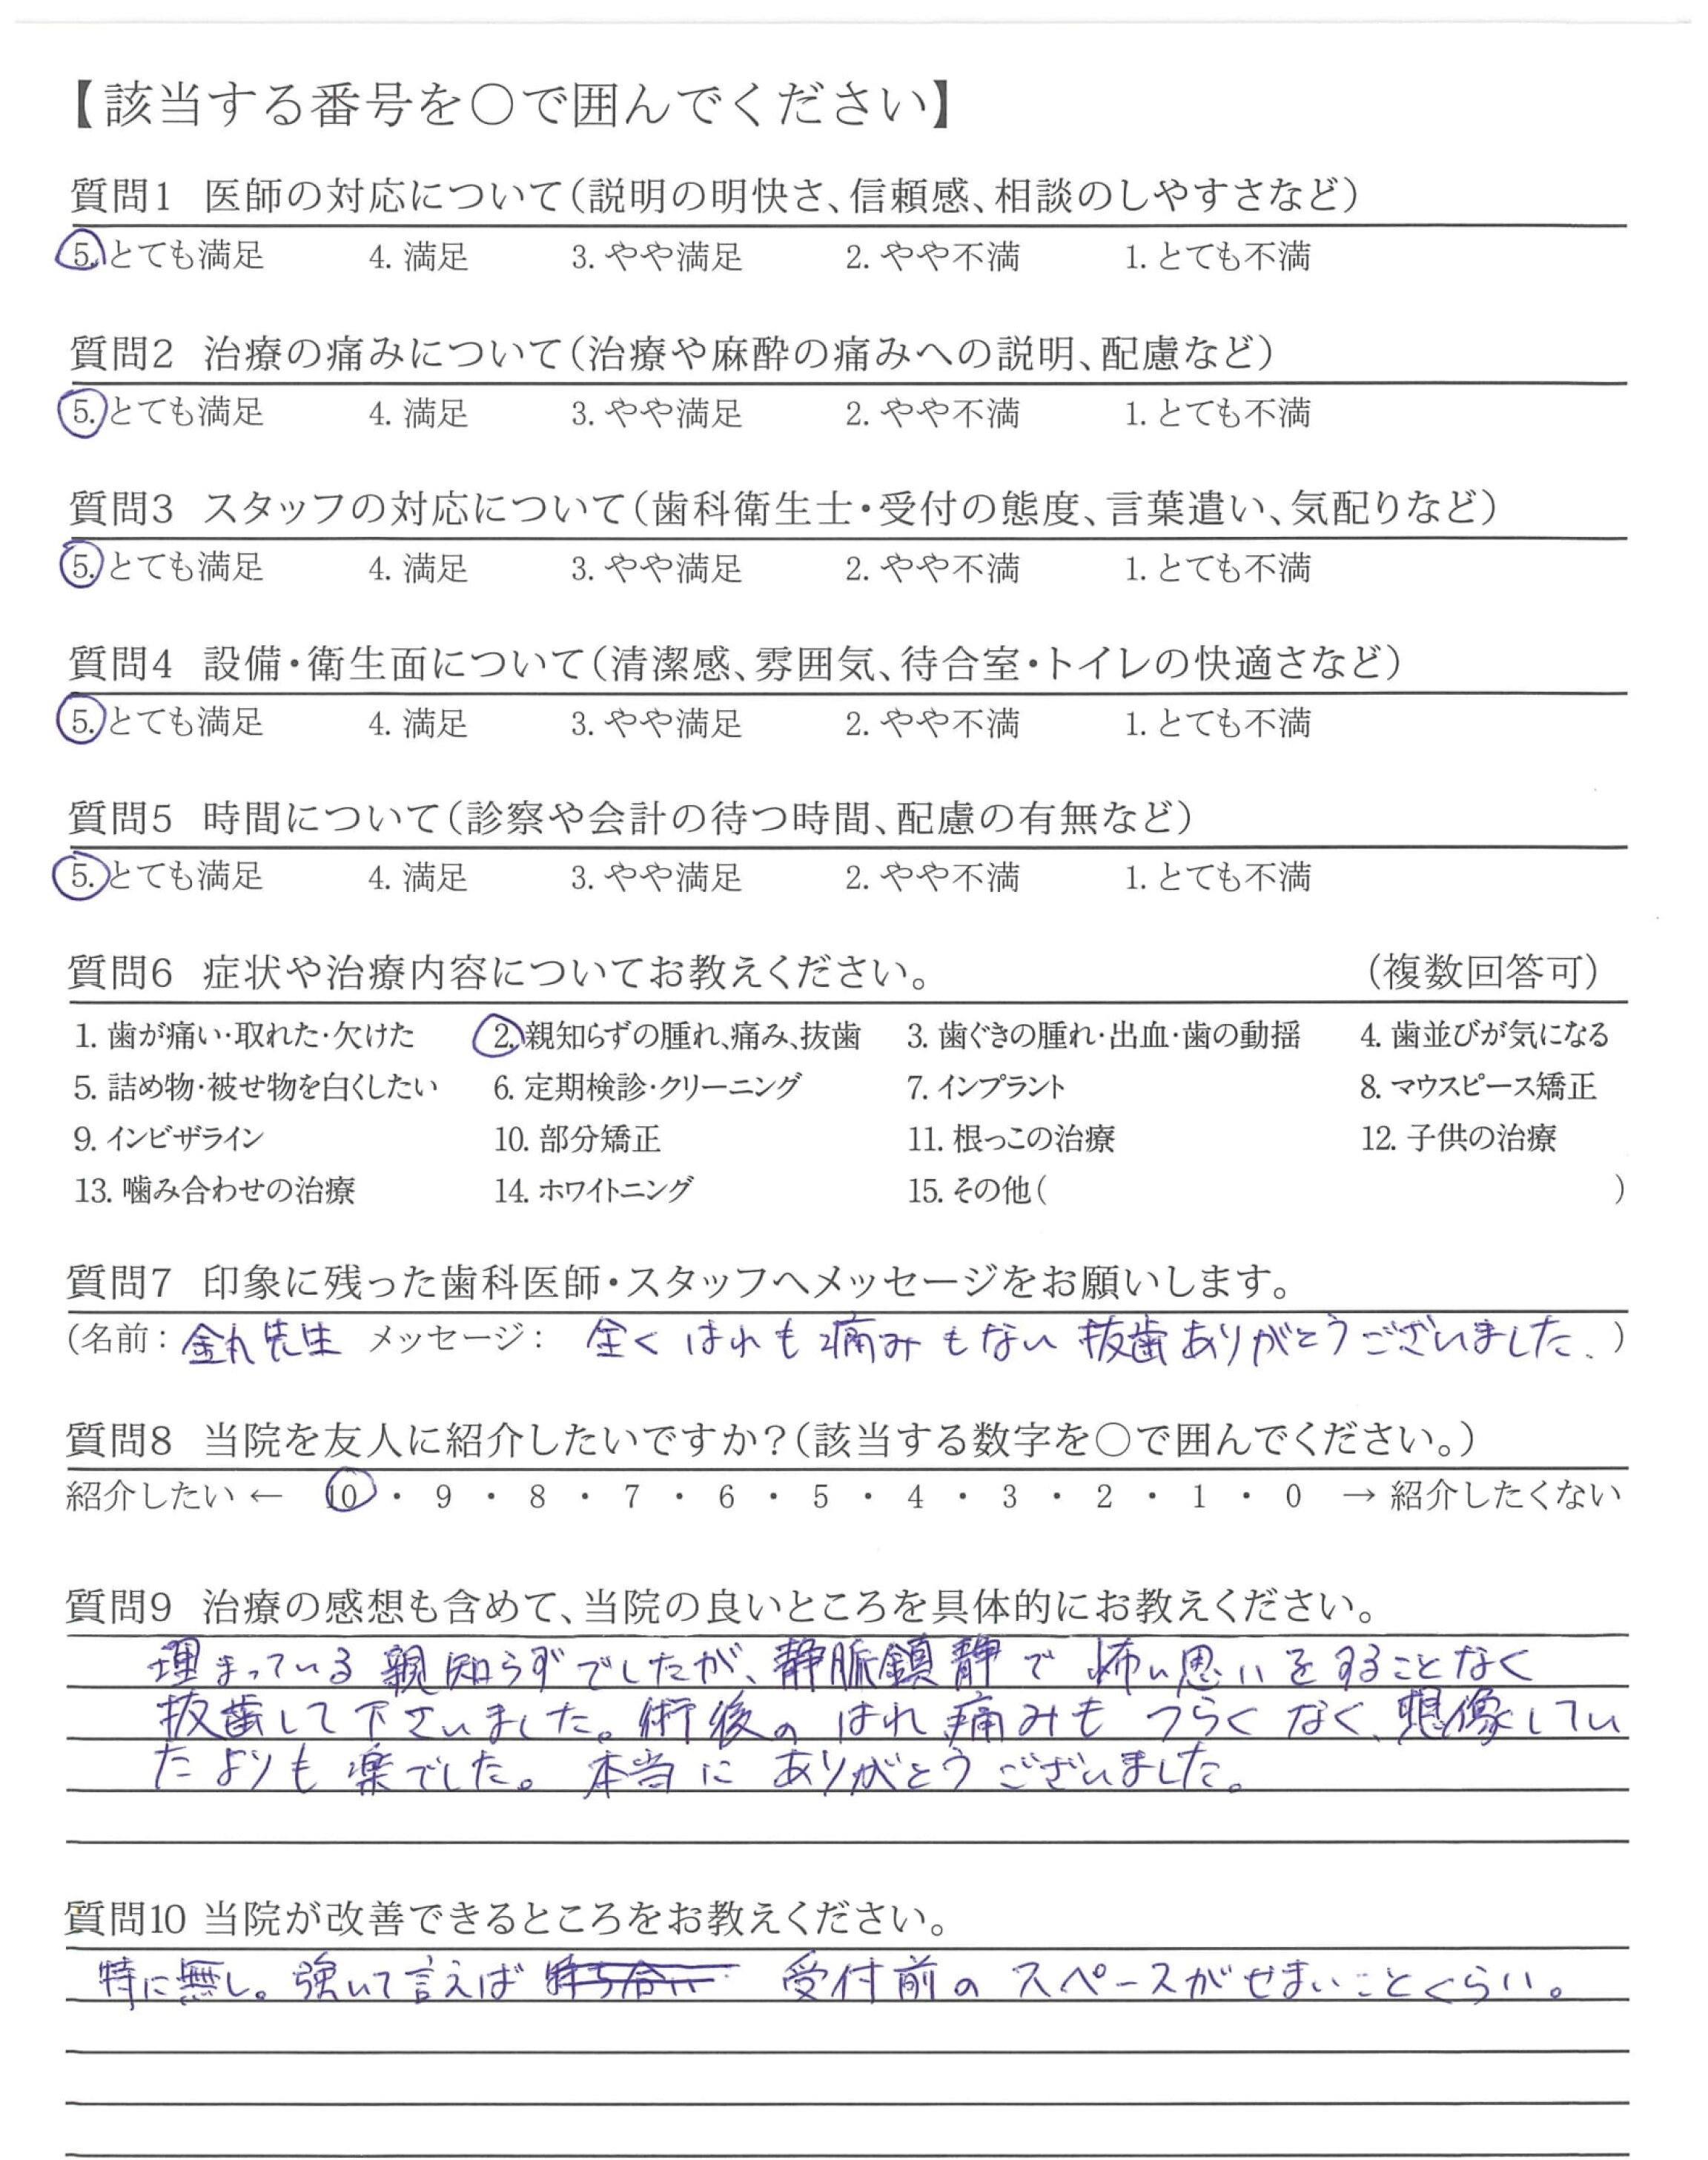 【該当する番号を〇で囲んでください】
質問1 医師の対応について(説明の明快さ、信頼感、相談のしやすさなど)
5. とても満足 4. 満足 3. やや満足 2. やや不満 1. とても不満
質問2 治療の痛みについて(治療や麻酔の痛みへの説明、配慮など)
5. とても満足 4. 満足 3. やや満足 2. やや不満 1. とても不満
質問3 スタッフの対応について(歯科衛生士・受付の態度、言葉遣い、気配りなど)
5. とても満足 4. 満足 3. やや満足 2. やや不満 1. とても不満
質問4 設備・衛生面について(清潔感、雰囲気、待合室・トイレの快適さなど)
5. とても満足 4. 満足 3. やや満足 2. やや不満 1. とても不満
質問5 時間について(診察や会計の待つ時間、配慮の有無など)
5. とても満足 4. 満足 3. やや満足 2. やや不満 1. とても不満
質問6 症状や治療内容についてお教えください。 (複数回答可)
1. 歯が痛い・取れた・欠けた 2. 親知らずの腫れ、痛み、抜歯 3. 歯ぐきの腫れ・出血・歯の動揺 4. 歯並びが気になる
5. 詰め物・被せ物を白くしたい 6. 定期検診・クリーニング 7. インプラント 8. マウスピース矯正
9. インビザライン 10. 部分矯正 11. 根っこの治療 12. 子供の治療
13. 噛み合わせの治療 14. ホワイトニング 15. その他( )
質問7 印象に残った歯科医師・スタッフへメッセージをお願いします。
(名前: 金丸先生 メッセージ: 全くはれも痛みもない抜歯ありがとうございました.)
質問8 当院を友人に紹介したいですか?(該当する数字を〇で囲んでください。)
紹介したい ← 10 ・ 9 ・ 8 ・ 7 ・ 6 ・ 5 ・ 4 ・ 3 ・ 2 ・ 1 ・ 0 → 紹介したくない
質問9 治療の感想も含めて、当院の良いところを具体的にお教えください。
埋まっている親知らずでしたが、静脈鎮静で怖い思いをすることなく
抜歯して下さいました。術後のはれ痛みもつらくなく、想像してい
たよりも楽でした。本当にありがとうございました。
質問10 当院が改善できるところをお教えください。
特に無し。強いて言えば 受付前のスペースがせまいことくらい。